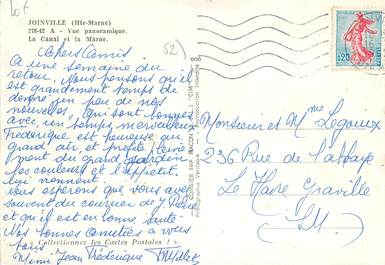 Lot
JOINVILLE (Hte-Marne)
278-42 A - Vue panoramique.
Le Canal et la Marne.
52)
Chers Amis
A une semaine du
retour. Nous pensons qu'il
est grandement temps de
donner un peu de nos
nouvelles, qui sont bonnes
avec un temps merveilleux
Frédérique est heureuse au
grand air, et profite
ment du grand jardin
les couleurs et l'appétit
lui viennent.
Nous espérons que vous avez
souvent du courrier de J. Pierre
et qu'il est en bonne santé.
Nos bonnes amitiés à vous
tous
Collectionnez les Cartes Postales !
Mimi Jean Frédérique Millet
Photographie Véritable - Reproduction Interdite
0,20
Monsieur et Mme Legoux
236 Rue de l'abbaye
Le Havre Graville
S.M.